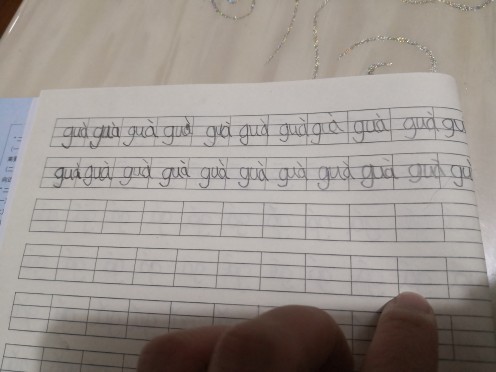 guà guà guà guà guà guà guà già guà guà gu
guà guà guà guà guà guà guà guà guà guà guà